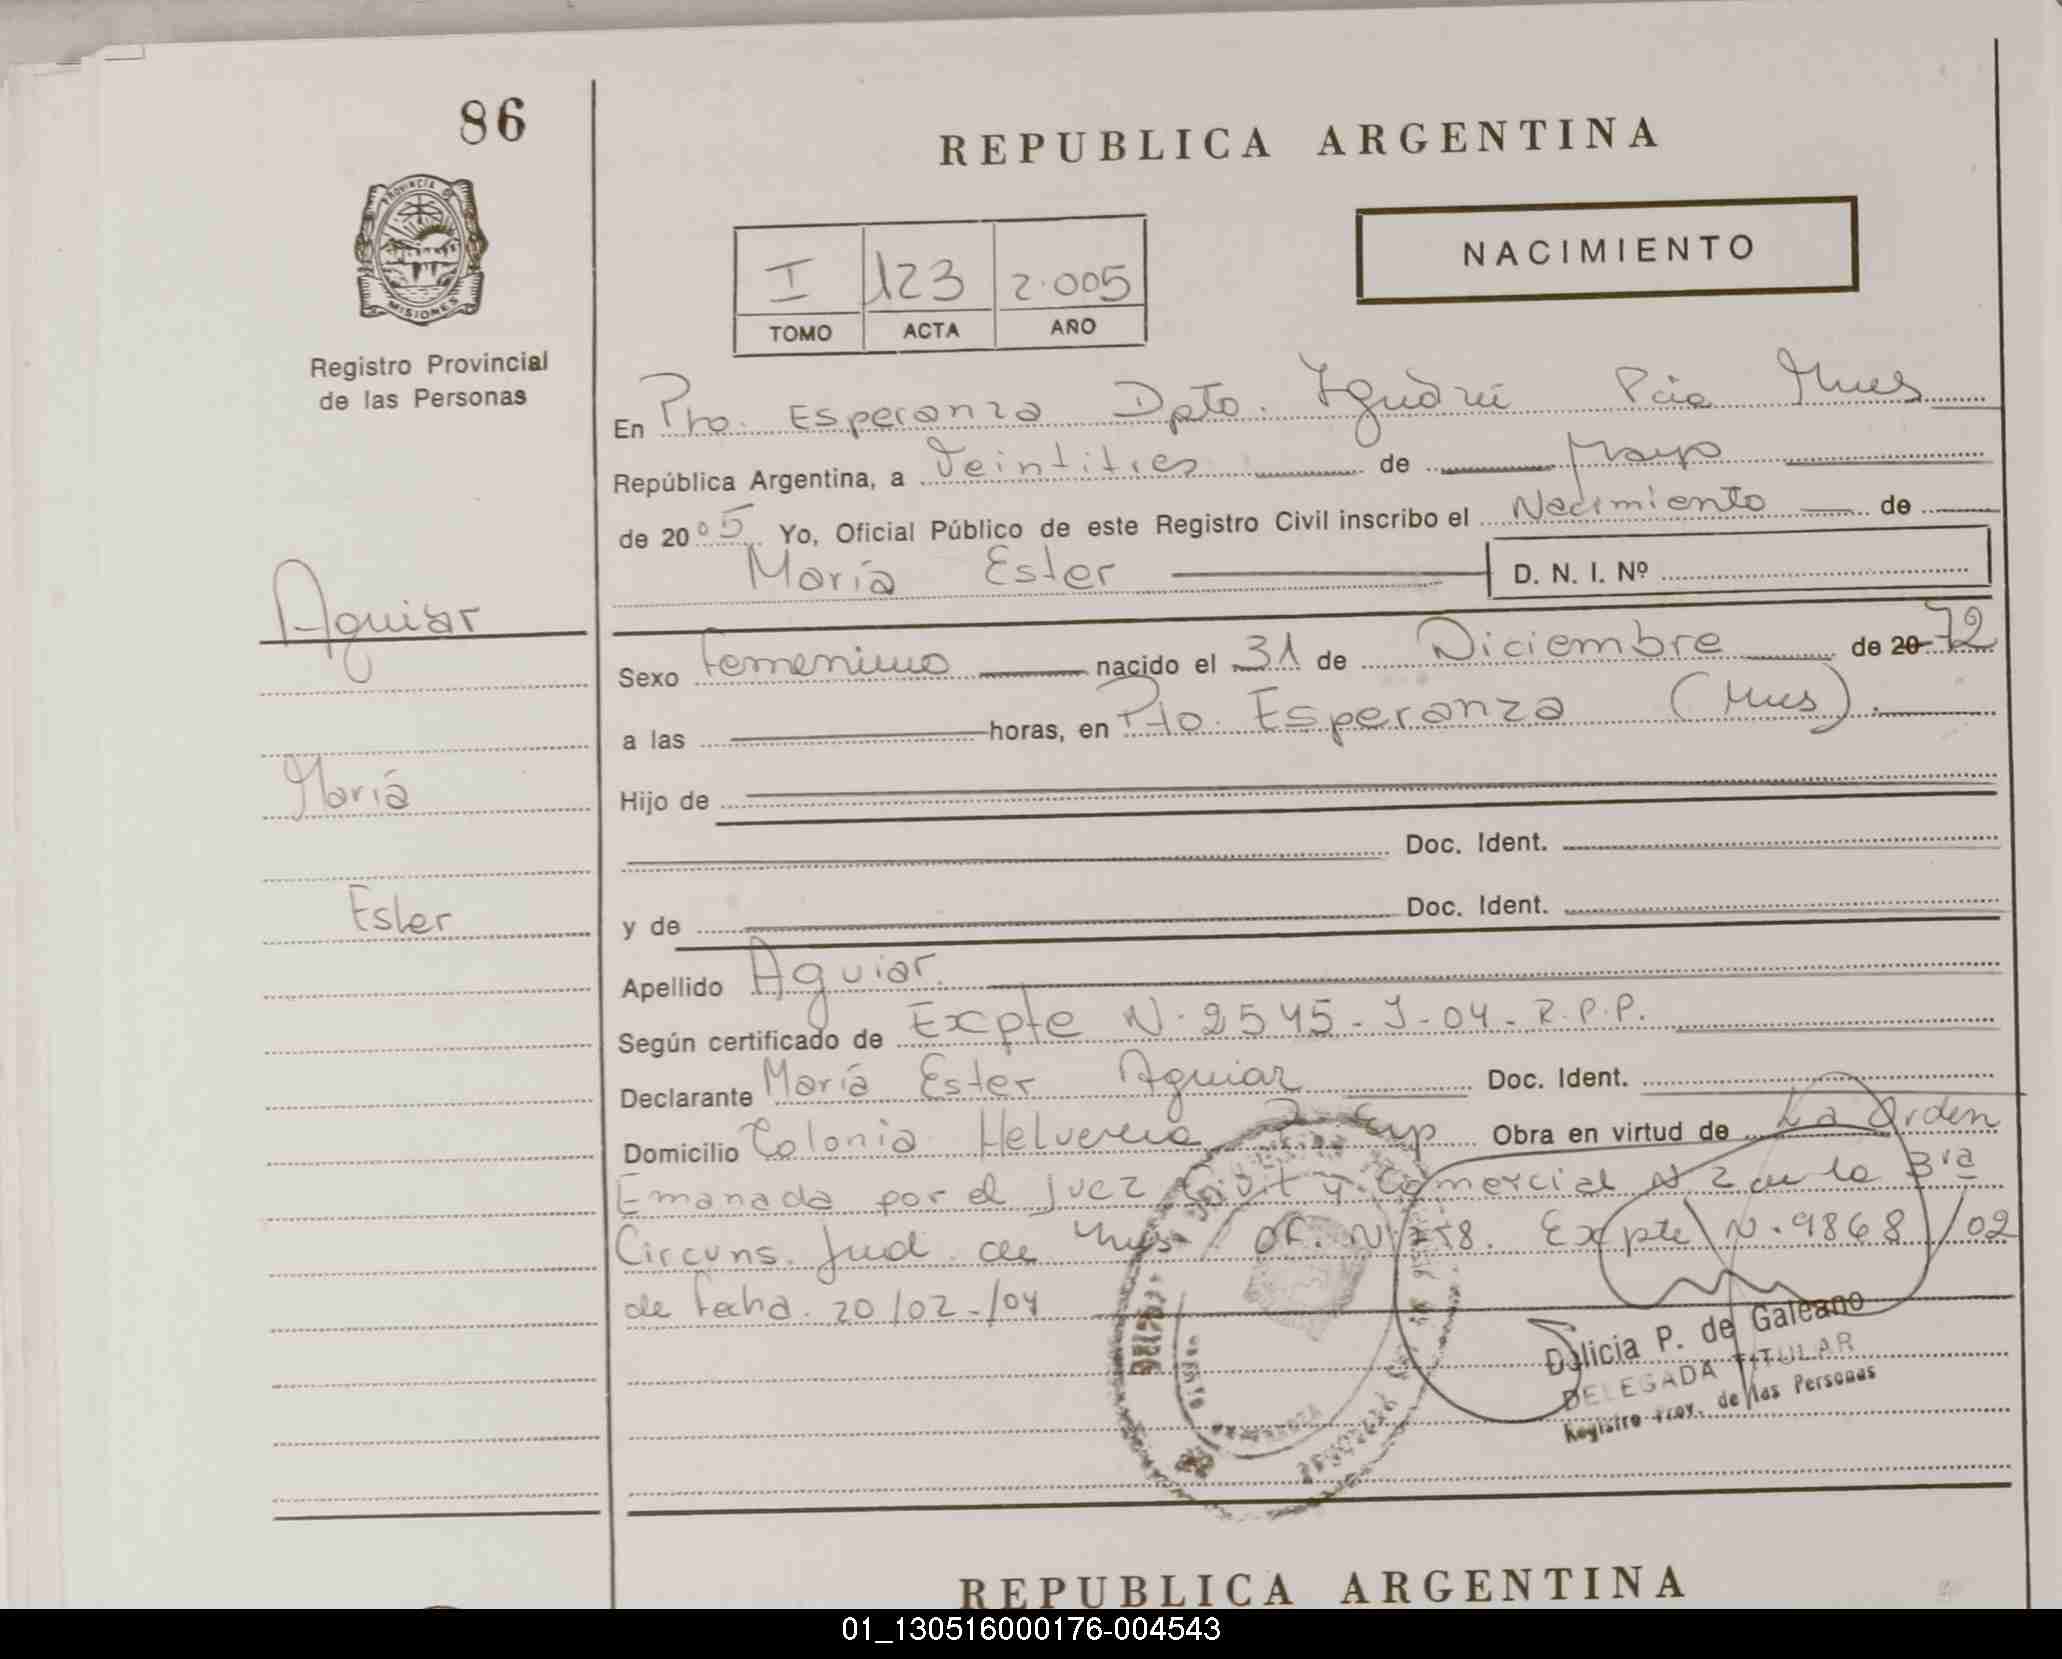 86
REPUBLICA ARGENTINA
PROVINCIA DE
MISIONES
Registro Provincial
de las Personas
NACIMIENTO
I 123 2.005
TOMO ACTA AÑO
En Pto. Esperanza Dpto. Iguazú Pcia Mnes
República Argentina, a Veintitres de Mayo
de 2005 Yo, Oficial Público de este Registro Civil inscribo el Nacimiento de
María Ester D. N. I. Nº
Aguiar
Sexo Femenino nacido el 31 de Diciembre de 20 72
a las horas, en Pto. Esperanza (Mnes).
María
Hijo de
Doc. Ident.
Ester
y de Doc. Ident.
Apellido Aguiar.
Según certificado de Expte N. 2545-J-04-R.P.P.
Declarante María Ester Aguiar Doc. Ident.
Domicilio Colonia Helvecia Obra en virtud de La Orden
Emanada por el Juez Civil y Comercial N 2 de la 3ra
Circuns. Jud. de Mnes. Of. N. Expte N. 9868/02
de fecha. 20/02-/04
Delicia P. de Galeano
DELEGADA TITULAR
Registro Prov. de las Personas
REPUBLICA ARGENTINA
01_130516000176-004543